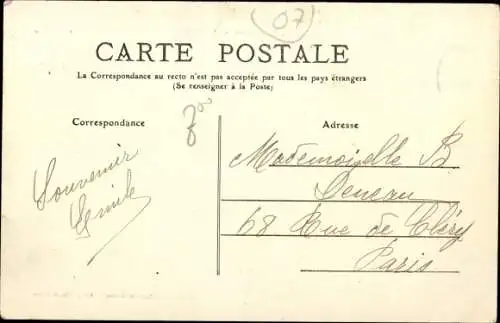 07
CARTE POSTALE
La Correspondance au recto n'est pas acceptée par tous les pays étrangers
(Se renseigner à la Poste)
Correspondance
Adresse
Souvenir
Mademoiselle B
68 Rue de Cléry
Paris